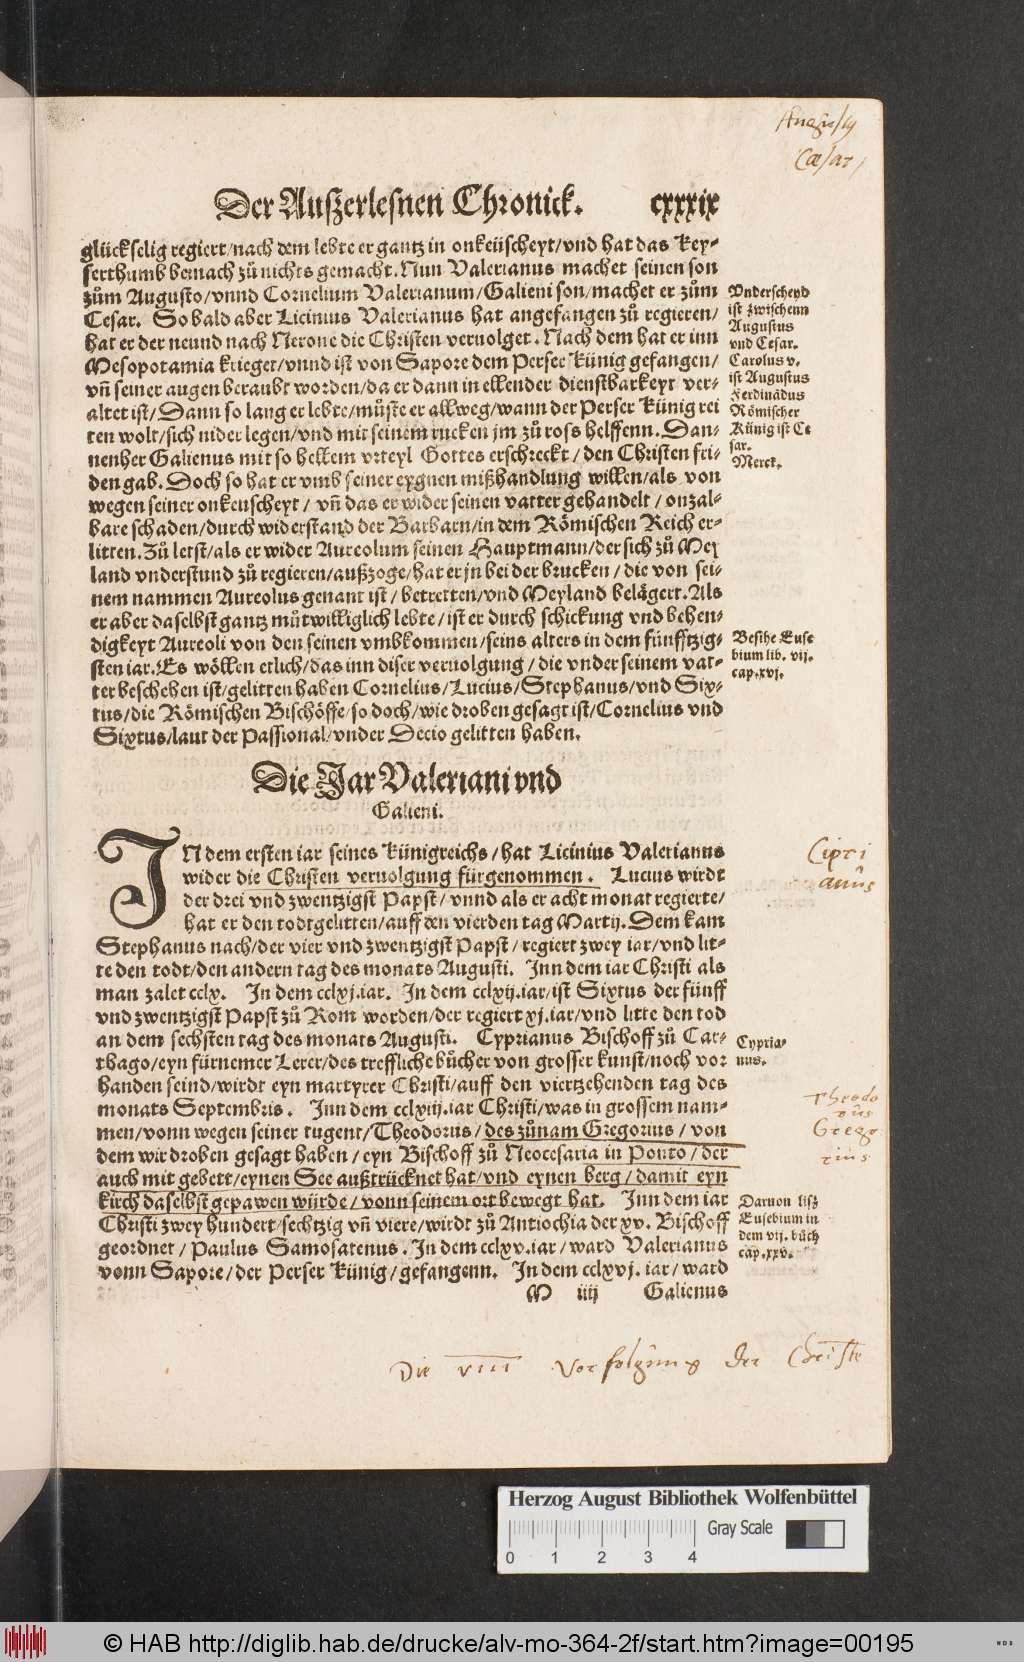 Augustus
Cæsar
Der Außerlesnen Chronick. cxxxix
glückselig regiert/nach dem lebte er gantz in onkeüscheyt/vnd hat das Key-
serthumb beinach zů nichts gemacht. Nun Valerianus machet seinen son
zům Augusto/vnnd Cornelium Valerianum/Galieni son/machet er zům
Cesar. So bald aber Licinius Valerianus hat angefangen zů regieren/
hat er der neund nach Nerone die Christen veruolget. Nach dem hat er inn
Mesopotamia krieget/vnnd ist von Sapore dem Perser Künig gefangen/
vñ seiner augen beraubt worden/da er dann in ellender dienstbarkeyt ver-
altet ist/Dann so lang er lebte/můste er allweg/wann der Perser Künig rei
ten wolt/sich nider legen/vnd mit seinem rucken jm zů ross helffenn. Dan-
nenher Galienus mit so hellem vrteyl Gottes erschreckt/den Christen fri-
den gab. Doch so hat er vmb seiner eygnen mißhandlung willen/als von
wegen seiner onkeuscheyt/vñ das er wider seinen vatter gehandelt/onzal-
bare schaden/durch widerstand der Barbarn/in dem Römischen Reich er-
litten. Zů letst/als er wider Aureolum seinen Hauptmann/der sich zů Mey
land vnderstund zů regieren/außzoge/hat er jn bei der brucken/die von sei-
nem nammen Aureolus genant ist/betretten/vnd Meyland belägert. Als
er aber daselbst gantz můtwilliglich lebte/ist er durch schickung vnd behen-
digkeyt Aureoli von den seinen vmbkommen/seins alters in dem fünfftzig-
sten iar. Es wöllen etlich/das inn diser veruolgung/die vnder seinem vat-
ter beschehen ist/gelitten haben Cornelius/Lucius/Stephanus/vnd Six-
tus/die Römischen Bischöffe/so doch/wie droben gesagt ist/Cornelius vnd
Sixtus/laut der Passional/vnder Decio gelitten haben.
Vnderscheyd
ist zwischenn
Augustus
vnd Cesar.
Carolus v.
ist Augustus
Ferdinãdus
Römischer
Künig ist Ce
sar.
Merck.
Besihe Euse
bium lib. vij.
cap.xvj.
Die Jar Valeriani vnd
Galieni.
IN dem ersten iar seines Künigreichs/hat Licinius Valerianus
wider die Christen veruolgung fürgenommen. Lucius wirdt
der drei vnd zwentzigst Papst/vnnd als er acht monat regierte/
hat er den todt gelitten/auff den vierden tag Martij. Dem kam
Stephanus nach/der vier vnd zwentzigst Papst/regiert zwey iar/vnd lit-
te den todt/den andern tag des monats Augusti. Inn dem iar Christi als
man zalet cclx. In dem cclxj.iar. In dem cclxij.iar/ist Sixtus der fünff
vnd zwentzigst Papst zů Rom worden/der regiert xj.iar/vnd litte den tod
an dem sechsten tag des monats Augusti. Cyprianus Bischoff zů Car-
thago/eyn fürnemer Lerer/des treffliche bücher von grosser kunst/noch vor
handen seind/wirdt eyn martyrer Christi/auff den viertzehenden tag des
monats Septembris. Inn dem cclxiij.iar Christi/was in grossem nam-
men/vonn wegen seiner tugent/Theodorus/des zůnam Gregorius/von
dem wir droben gesagt haben/eyn Bischoff zů Neocesaria in Ponto/der
auch mit gebett/eynen See außtrücknet hat/vnd eynen berg/damit eyn
kirch daselbst gepawen würde/vonn seinem ort bewegt hat. Inn dem iar
Christi zwey hundert/sechtzig vñ viere/wirdt zů Antiochia der xv. Bischoff
geordnet/Paulus Samosatenus. In dem cclxv.iar/ward Valerianus
vonn Sapore/der Perser Künig/gefangenn. In dem cclxvj. iar/ward
M iiij Galienus
Cipri
anůs
Cypria-
nus.
Theodo
růs
Grego
riůs
Daruon liß
Eusebium in
dem vij. bůch
cap.xxv.
Die VIII Vorfolgůng der Christe
Herzog August Bibliothek Wolfenbüttel
Gray Scale
0 1 2 3 4
© HAB http://diglib.hab.de/drucke/alv-mo-364-2f/start.htm?image=00195